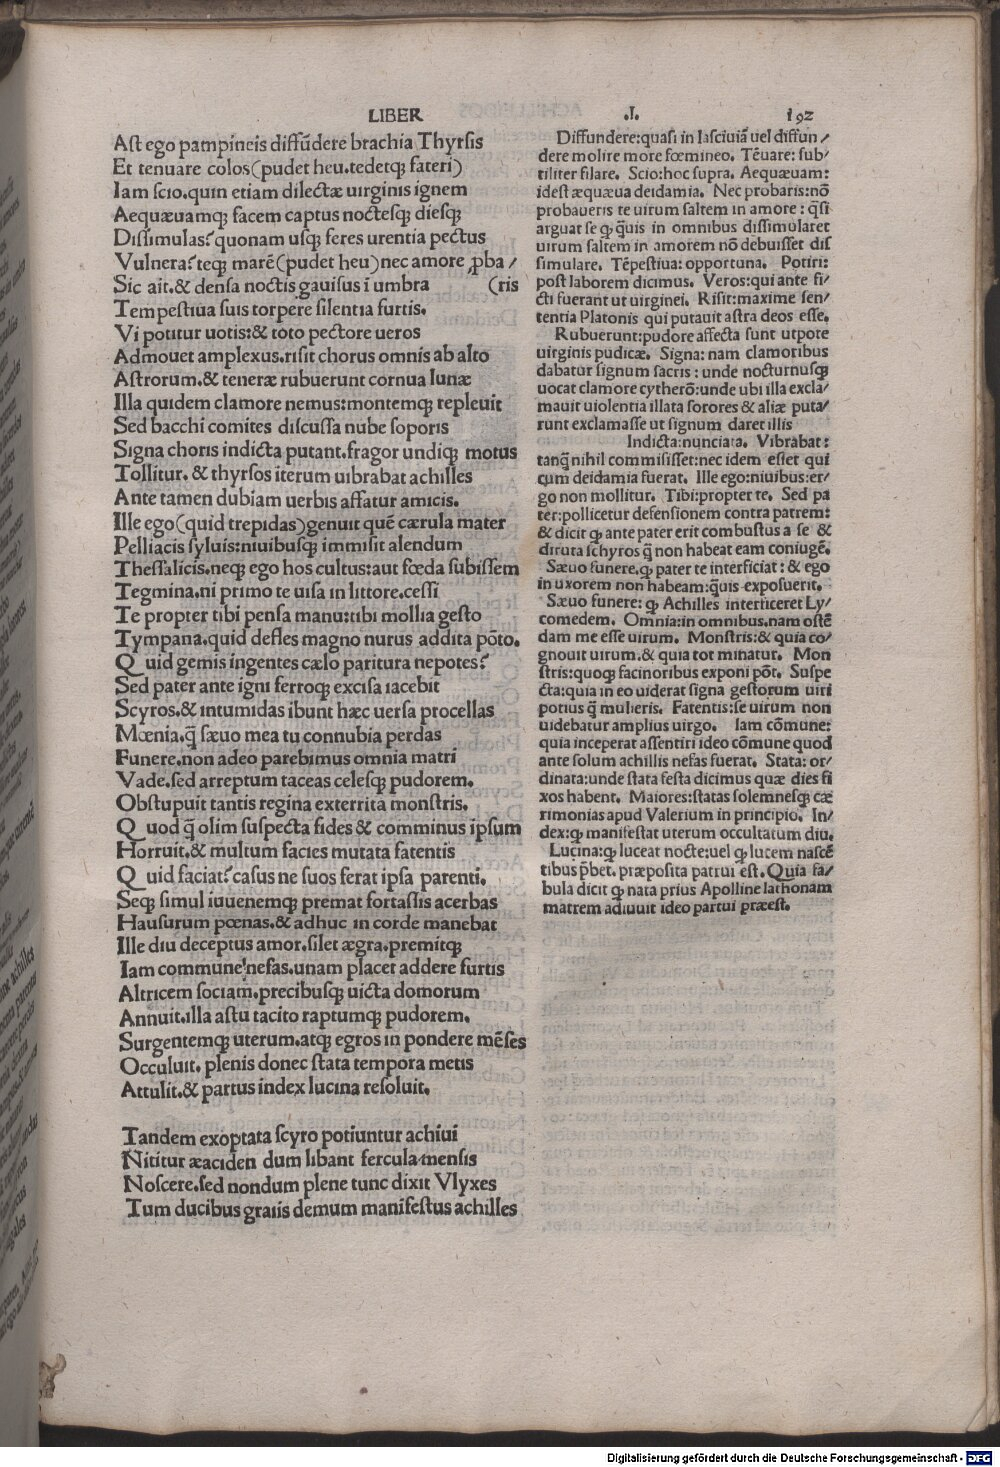 LIBER .I. 192
Ast ego pampineis diffūdere brachia Thyrsis
Et tenuare colos(pudet heu.tedetqȝ fateri)
Iam scio.quin etiam dilectæ uirginis ignem
Aequæuamqȝ facem captus noctesqȝ diesqȝ
Dissimulas?quonam usqȝ feres urentia pectus
Vulnera?teqȝ marē(pudet heu)nec amore ꝓba/
Sic ait.& densa noctis gauisus ī umbra (ris
Tempestiua suis torpere silentia furtis.
Vi potitur uotis:& toto pectore ueros
Admouet amplexus.risit chorus omnis ab alto
Astrorum.& teneræ rubuerunt cornua lunæ
Illa quidem clamore nemus:montemqȝ repleuit
Sed bacchi comites discussa nube soporis
Signa choris indicta putant.fragor undiqȝ motus
Tollitur.& thyrsos iterum uibrabat achilles
Ante tamen dubiam uerbis affatur amicis.
Ille ego(quid trepidas)genuit quē cærula mater
Pelliacis syluis:niuibusqȝ immisit alendum
Thessalicis.neqȝ ego hos cultus:aut fœda subissem
Tegmina.ni primo te uisa in littore.cessi
Te propter tibi pensa manu:tibi mollia gesto
Tympana.quid defles magno nurus addita pōto.
Quid gemis ingentes cælo paritura nepotes?
Sed pater ante igni ferroqȝ excisa iacebit
Scyros.& intumidas ibunt hæc uersa procellas
Mœnia.q̄ sæuo mea tu connubia perdas
Funere.non adeo parebimus omnia matri
Vade.sed arreptum taceas celesqȝ pudorem.
Obstupuit tantis regina exterrita monstris.
Quod q̄ olim suspecta fides & comminus ipsum
Horruit.& multum facies mutata fatentis
Quid faciat?casus ne suos ferat ipsa parenti.
Seqȝ simul iuuenemqȝ premat fortassis acerbas
Hausurum pœnas.& adhuc in corde manebat
Ille diu deceptus amor.silet ægra.premitqȝ
Iam commune nefas.unam placet addere furtis
Altricem sociam.precibusqȝ uicta domorum
Annuit.illa astu tacito raptumqȝ pudorem.
Surgentemqȝ uterum.atqȝ egros in pondere mēses
Occuluit. plenis donec stata tempora metis
Attulit.& partus index lucina resoluit.
Tandem exoptata scyro potiuntur achiui
Nititur æaciden dum libant fercula mensis
Noscere.sed nondum plene tunc dixit Vlyxes
Tum ducibus graiis demum manifestus achilles
Diffundere:quasi in lasciuiā uel diffun/
dere molire more fœmineo. Tēuare: sub/
tiliter filare. Scio:hoc supra. Aequæuam:
idest æquæua deidamia. Nec probaris:nō
probaueris te uirum saltem in amore : q̄si
arguat se qȝ q̄uis in omnibus dissimularet
uirum saltem in amorem nō debuisset dis
simulare. Tēpestiua: opportuna. Potiri:
post laborem dicimus. Veros:qui ante fi/
cti fuerant ut uirginei. Risit:maxime sen/
tentia Platonis qui putauit astra deos esse.
Rubuerunt:pudore affecta sunt utpote
uirginis pudicæ. Signa: nam clamoribus
dabatur signum sacris : unde nocturnusqȝ
uocat clamore cytherō:unde ubi illa excla/
mauit uiolentia illata sorores & aliæ puta/
runt exclamasse ut signum daret illis
Indicta:nunciata. Vibrabat:
tanq̄ nihil commisisset:nec idem esset qui
cum deidamia fuerat. Ille ego:niuibus:er/
go non mollitur. Tibi:propter te. Sed pa
ter:pollicetur defensionem contra patrem:
& dicit qȝ ante pater erit combustus a se &
diruta schyros q̄ non habeat eam coniugē.
Sæuo funere.qȝ pater te interficiat : & ego
in uxorem non habeam:q̄uis exposuerit.
Sæuo funere: qȝ Achilles interficeret Ly/
comedem. Omnia:in omnibus.nam ostē
dam me esse uirum. Monstris:& quia co/
gnouit uirum.& quia tot minatur. Mon
stris:quoqȝ facinoribus exponi pōt. Suspe
cta:quia in eo uiderat signa gestorum uiri
potius q̄ mulieris. Fatentis:se uirum non
uidebatur amplius uirgo. Iam cōmune:
quia inceperat assentiri ideo cōmune quod
ante solum achillis nefas fuerat. Stata: or/
dinata:unde stata festa dicimus quæ dies fi
xos habent. Maiores:statas solemnesqȝ cæ
rimonias apud Valerium in principio. In/
dex:qȝ manifestat uterum occultatum diu.
Lucina:qȝ luceat nocte:uel qȝ lucem nascē
tibus p̄bet. præposita patrui est. Quia fa/
bula dicit qȝ nata prius Apolline lathonam
matrem adiuuit ideo partui præest.
Digitalisierung gefördert durch die Deutsche Forschungsgemeinschaft - DFG